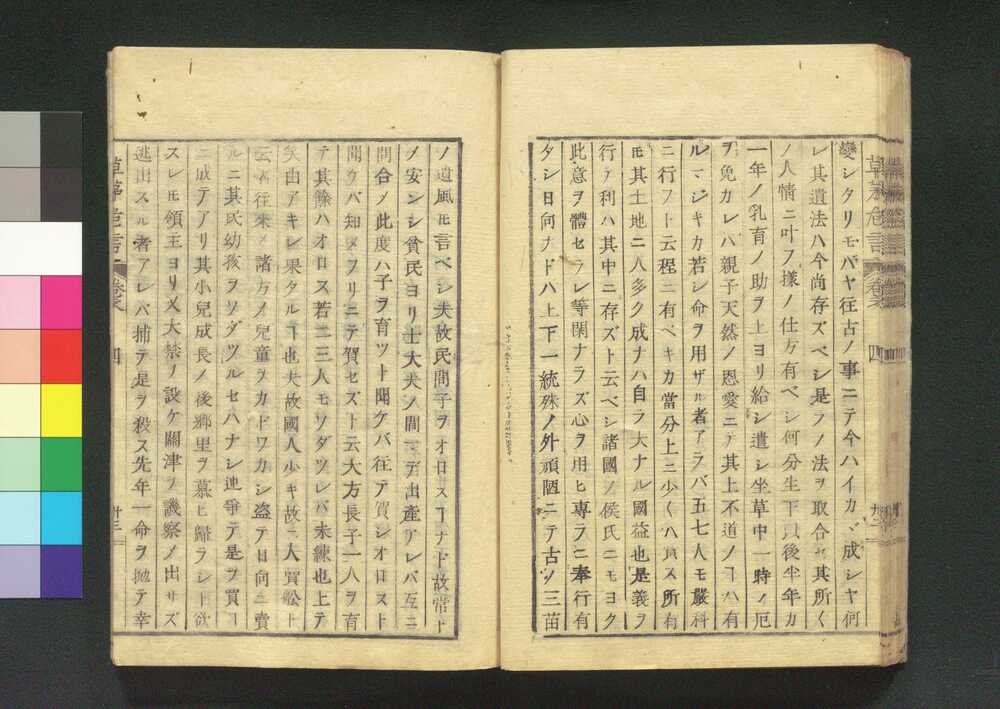 變シタリモバヤ往古ノ事ニテ今ハイカヾ成シヤ何
レ其遺法ハ今尚存ズベシ是フノ法ヲ取合セ其所く
ノ人情ニ叶フ樣ノ仕方有ベシ何分生下ヨリ後半年カ
一年ノ乳育ノ助ヲ上ヨリ給シ遣シ坐草中一時ノ厄
ヲ免カレハ親子天然ノ恩愛ニテ其上不道ノヿハ有
ルマジキカ若シ命ヲ用ザル者アラバ五七人モ嚴科
ニ行フト云程ニ有ベキカ當分上ニ少くハ費ス所有
モ其土地ニ人多ク成ナハ自ラ大ナル國益也是義ヲ
行ヘハ利ハ其中ニ存ズト云ベシ諸國ノ侯氏ニモヨク
此意ヲ體セラレ等閑ナラズ心ヲ用ヒ專ラニ奉行有
タシ日向ナドハ上下一統殊ノ外頑陋ニテ古ヘ三苗
草茅危言 卷之 四
ノ遺風モ言ベシ夫故民間子ヲオロスヿナド故常ト
メ安ンシ貧民ヨリ士大夫ノ間マデ出產アレバ互ニ
問合ノ此度ハ子ヲ育ツト聞ケバ往テ賀シオロスト
聞ケバ知ヌフリニテ賀セズト云大方長子一人ヲ育
テ其餘ハオロス若二三人モソダツレバ未練也上テ
笑由アキレ果タルヿ也夫故國人少キ故ニ人買舩ト
云者往來メ諸方ノ兒童ヲカドワカシ盗テ日向ニ賣
ルニ其民幼孩ヲソダツルセハナシ連爭テ是ヲ買フ
ニ成テアリ其小兒成長ノ後鄉里ヲ慕ヒ歸ラント欲
スレモ領主ヨリ乄大禁ヲ設ケ關津ヲ譏察メ出サズ
逃出スル者アレバ捕テ是ヲ殺ス先年一命ヲ抛テ幸
草茅危言 卷之 四